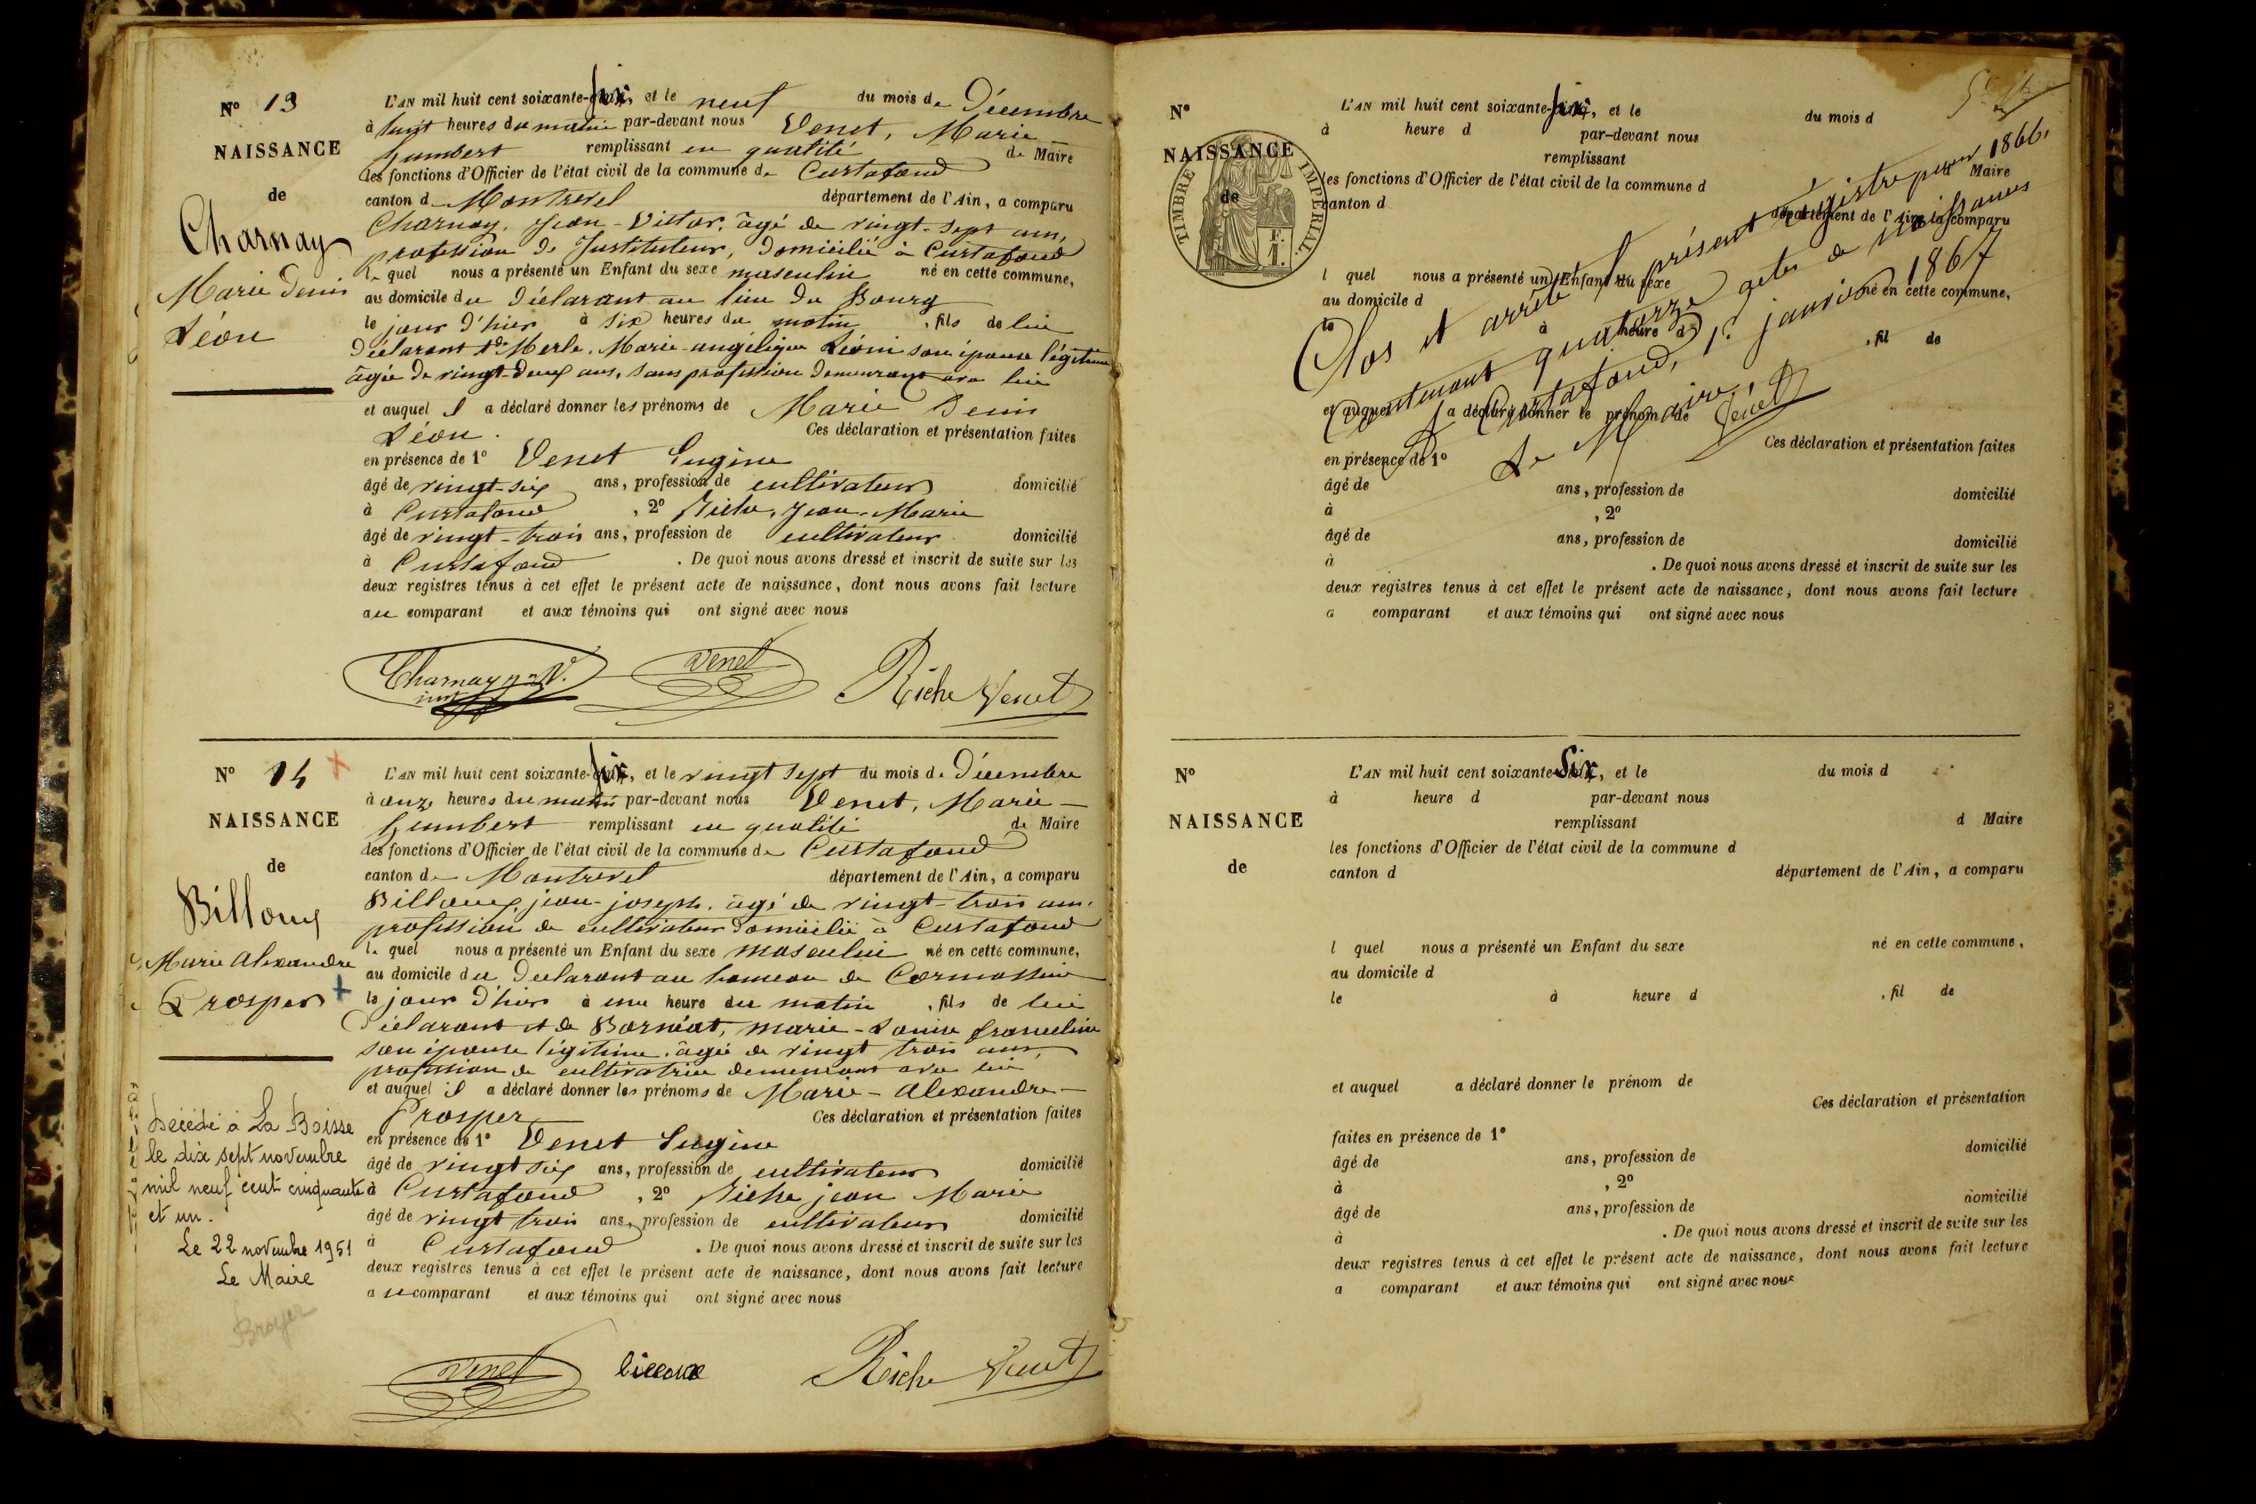 N° 13
NAISSANCE
de
Charnay
Marie Denis
Léon
L'AN mil huit cent soixante-six, et le neuf du mois de Décembre
à huit heures du matin par-devant nous Venet, Marie
Humbert remplissant en qualité de Maire
les fonctions d'Officier de l'état civil de la commune de Curtafond
canton de Montrevel département de l'Ain, a comparu
Charnay, Jean-Victor, âgé de vingt-sept ans,
profession de Instituteur, domicilié à Curtafond
lequel nous a présenté un Enfant du sexe masculin né en cette commune,
au domicile du Déclarant au lieu du Bourg
le jour d'hier à six heures du matin, fils de lui
Déclarant & de Merle, Marie-angélique Léonie son épouse légitime
âgée de vingt-deux ans, sans profession demeurant avec lui
et auquel il a déclaré donner les prénoms de Marie Denis
Léon. Ces déclaration et présentation faites
en présence de 1° Venet Eugène
âgé de vingt-six ans, profession de cultivateur domicilié
à Curtafond, 2° Riche, Jean-Marie
âgé de vingt-trois ans, profession de cultivateur domicilié
à Curtafond. De quoi nous avons dressé et inscrit de suite sur les
deux registres tenus à cet effet le présent acte de naissance, dont nous avons fait lecture
au comparant et aux témoins qui ont signé avec nous
Charnay J. V. Venet Riche Venet
inst
N° 14
NAISSANCE
de
Billoux
Marie Alexandre
Prosper
L'AN mil huit cent soixante-six, et le vingt sept du mois de Décembre
à onze heures du matin par-devant nous Venet, Marie-
Humbert remplissant en qualité de Maire
les fonctions d'Officier de l'état civil de la commune de Curtafond
canton de Montrevel département de l'Ain, a comparu
Billoux, jean-joseph, âgé de vingt-trois ans,
profession de cultivateur domicilié à Curtafond
lequel nous a présenté un Enfant du sexe masculin né en cette commune,
au domicile du Déclarant au hameau de
le jour d'hier à une heure du matin, fils de lui
Déclarant et de marie-Louise franceline
son épouse légitime, âgée de vingt trois ans,
profession de cultivatrice demeurant avec lui
et auquel il a déclaré donner les prénoms de Marie-Alexandre-
Prosper Ces déclaration et présentation faites
en présence de 1° Venet Eugène
âgé de vingt six ans, profession de cultivateur domicilié
à Curtafond, 2° Riche jean Marie
âgé de vingt trois ans, profession de cultivateur domicilié
à Curtafond. De quoi nous avons dressé et inscrit de suite sur les
deux registres tenus à cet effet le présent acte de naissance, dont nous avons fait lecture
au comparant et aux témoins qui ont signé avec nous
Venet billoux Riche Venet
Décédé à La Boisse
le dix sept novembre
mil neuf cent cinquante
et un.
Le 22 novembre 1951
Le Maire
Broyer
N°
NAISSANCE
de
TIMBRE IMPERIAL
L'AN mil huit cent soixante-six, et le du mois d
à heure d par-devant nous
remplissant d Maire
les fonctions d'Officier de l'état civil de la commune d
canton d département de l'Ain, a comparu
l quel nous a présenté un Enfant du sexe né en cette commune,
au domicile d
le à heure d , fil de
et auquel a déclaré donner le prénom de
Ces déclaration et présentation faites
en présence de 1°
âgé de ans, profession de domicilié
à , 2°
âgé de ans, profession de domicilié
à . De quoi nous avons dressé et inscrit de suite sur les
deux registres tenus à cet effet le présent acte de naissance, dont nous avons fait lecture
a comparant et aux témoins qui ont signé avec nous
Clos et arrêté le présent registre pour 1866,
Contenant quatorze actes de naissances
Curtafond, 1er janvier 1867
Le Maire,
Venet
N°
NAISSANCE
de
L'AN mil huit cent soixante-Six, et le du mois d
à heure d par-devant nous
remplissant d Maire
les fonctions d'Officier de l'état civil de la commune d
canton d département de l'Ain, a comparu
l quel nous a présenté un Enfant du sexe né en cette commune,
au domicile d
le à heure d , fil de
et auquel a déclaré donner le prénom de
Ces déclaration et présentation
faites en présence de 1°
âgé de ans, profession de domicilié
à , 2°
âgé de ans, profession de domicilié
à . De quoi nous avons dressé et inscrit de suite sur les
deux registres tenus à cet effet le présent acte de naissance, dont nous avons fait lecture
a comparant et aux témoins qui ont signé avec nous